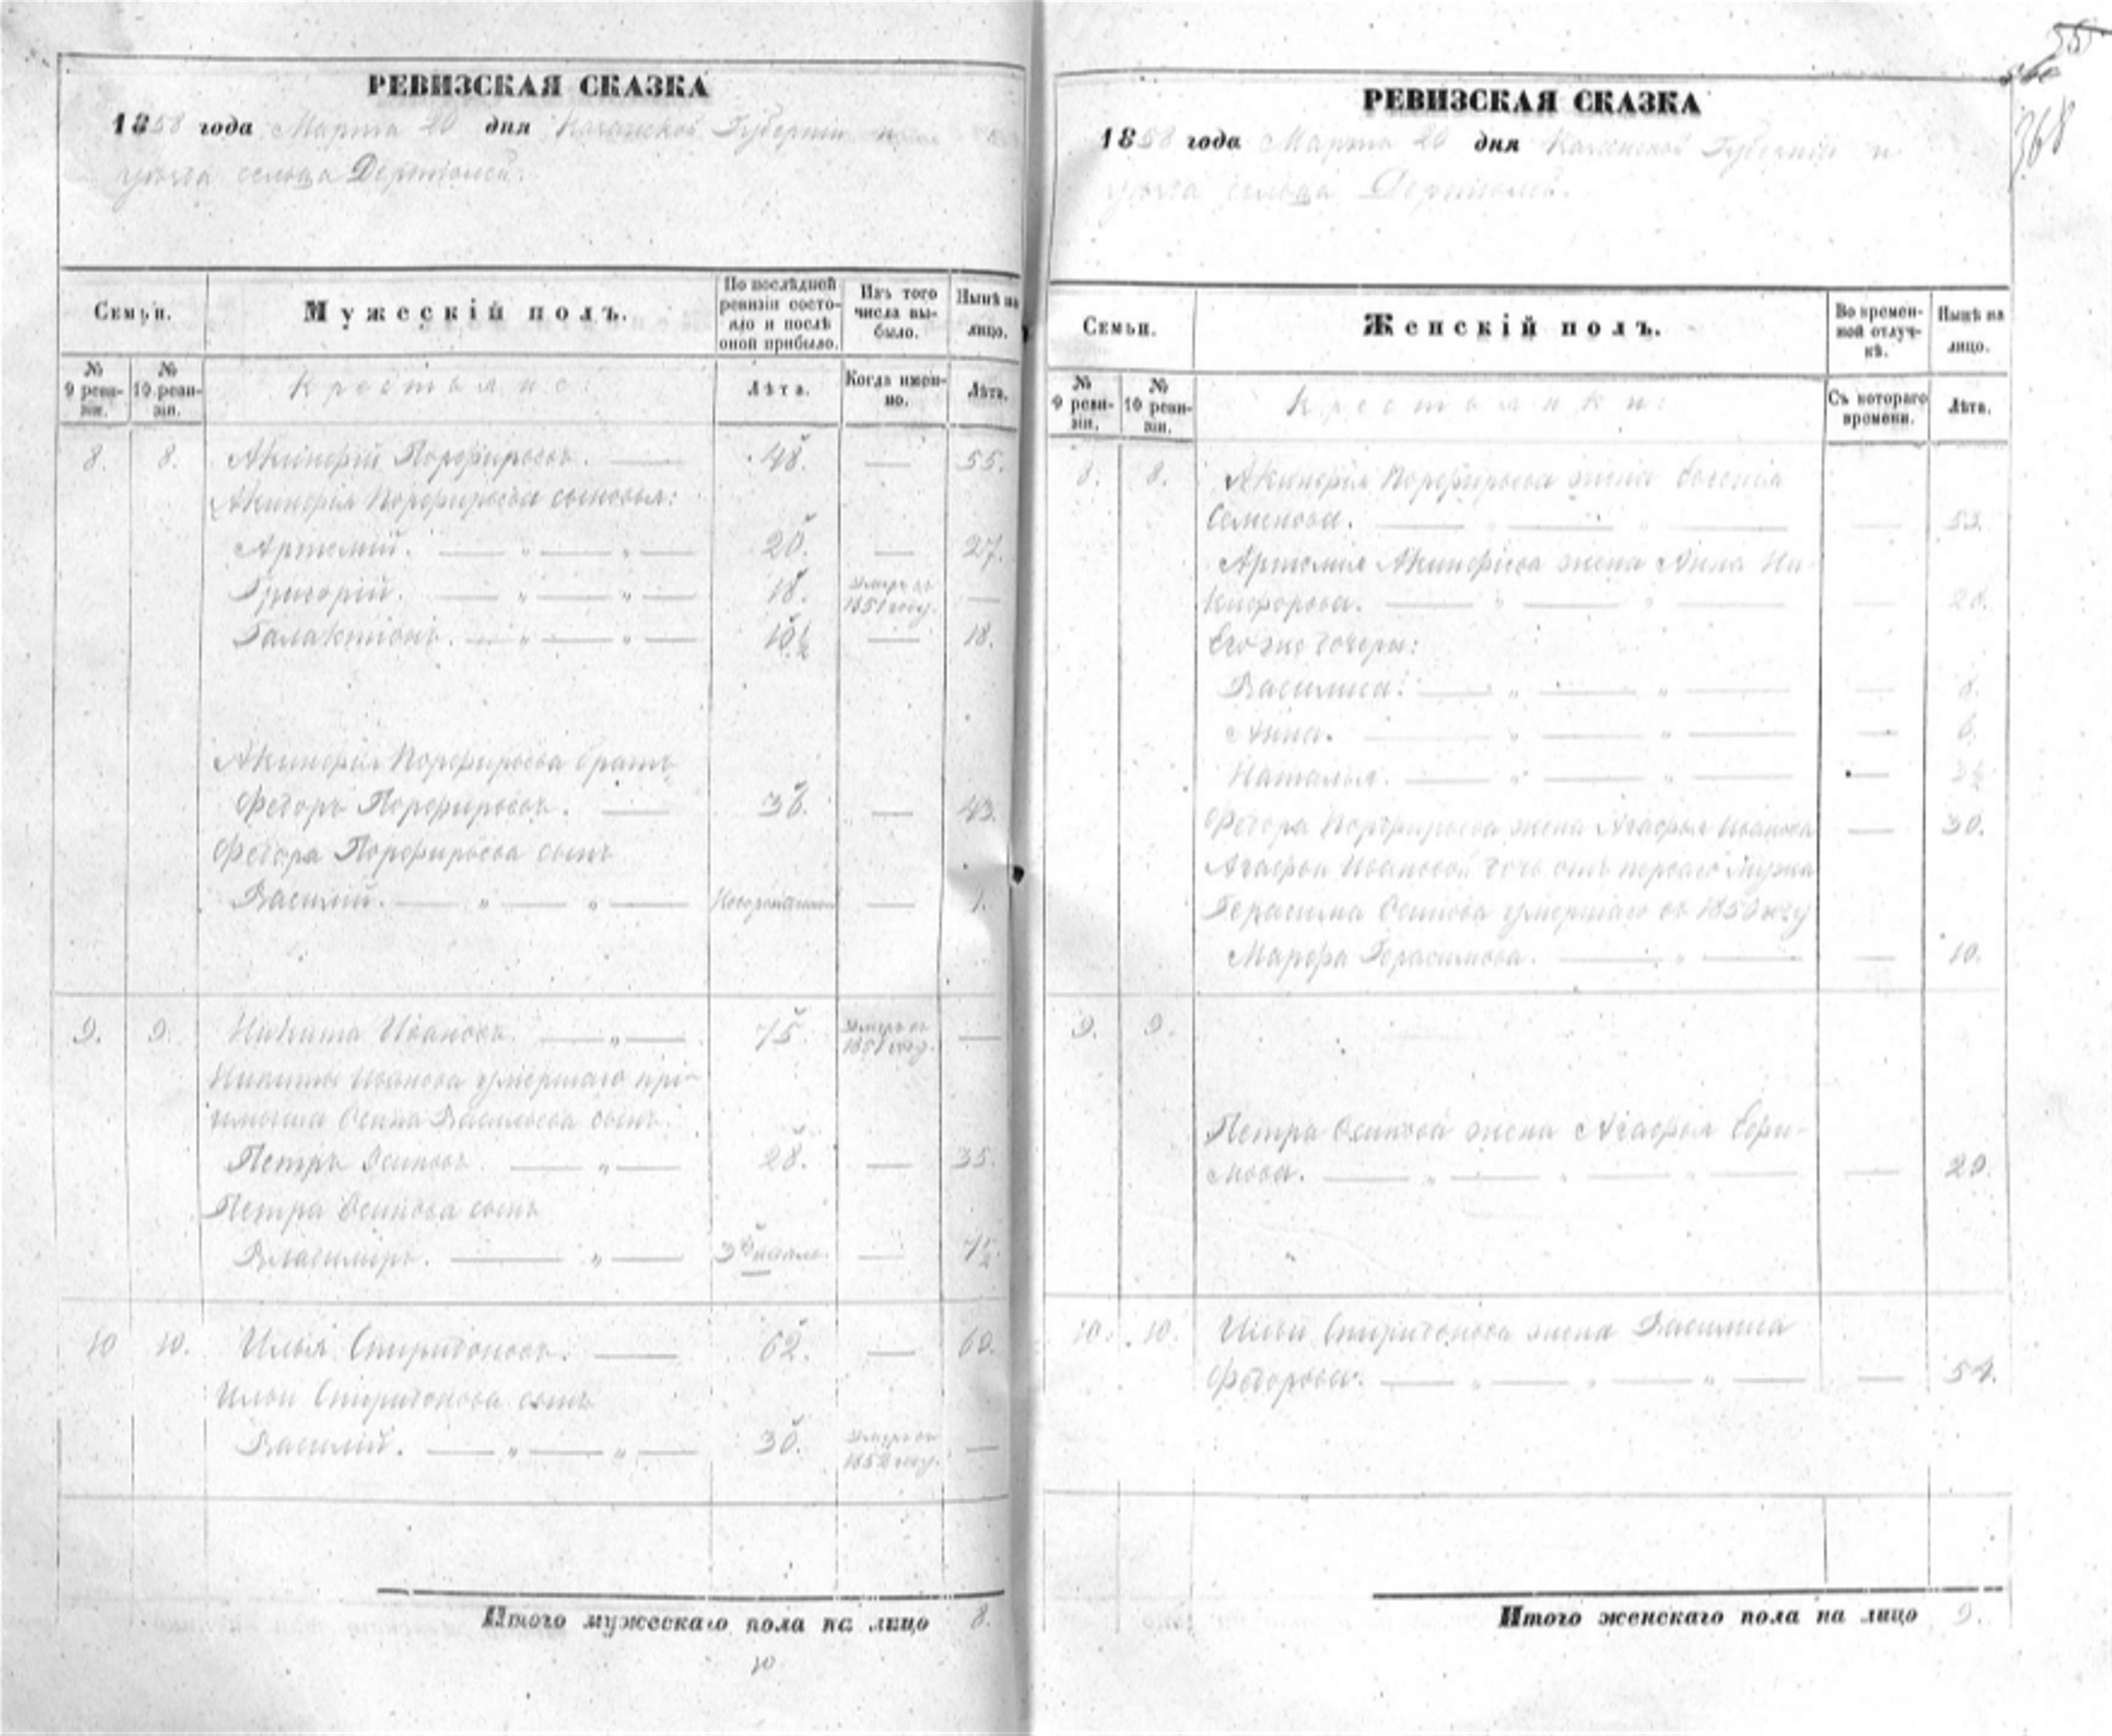 РЕВИЗСКАЯ СКАЗКА
1858 года Марта 20 дня Казанской Губернии и
уезда сельца Дертюлей.
Семьи.
Мужескій полъ.
По послѣдней ревизіи состояло и послѣ оной прибыло.
Изъ того числа выбыло.
Нынѣ на лицо.
№ 9 ревизіи.
№ 10 ревизіи.
Крестьяне:
Лѣта.
Когда именно.
Лѣта.
8. 8. Акинфій Порфирьевъ. 48. — 55.
Акинфія Порфирьева сыновья:
Артемій. — „ — „ — 20. — 27.
Григорій. — „ — „ — 18. Умеръ въ 1851 году. —
Галактіонъ. — „ — „ — 10½ — 18.
Акинфія Порфирьева братъ
Федоръ Порфирьевъ. — 36. — 43.
Федора Порфирьева сынъ
Василій. — „ — „ — Новорожденный — 1.
9. 9. Никита Ивановъ. — „ — 75. Умеръ въ 1851 году. —
Никиты Иванова умершаго прі-
емыша Осипа Васильева сынъ
Петръ Осиповъ. — „ — 28. — 35.
Петра Осипова сынъ
Владиміръ. — „ — — 7½.
10 10. Илья Спиридоновъ. — 62. — 69.
Ильи Спиридонова сынъ
Василій. — „ — „ — 30. Умеръ въ 1852 году. —
Итого мужескаго пола на лицо 8.
10
368
РЕВИЗСКАЯ СКАЗКА
1858 года Марта 20 дня Казанской Губерніи и
уезда сельца Дертюлей.
Семьи.
Женскій полъ.
Во временной отлучкѣ.
Нынѣ на лицо.
№ 9 ревизіи.
№ 10 ревизіи.
Крестьянки:
Съ котораго времени.
Лѣта.
8. 8. Акинфія Порфирьева жена
Семенова. — „ — „ — — 53.
Артемія Акинфіева жена Анна Ни-
кифорова. — „ — „ — — 28.
Его же дочери:
Василиса. — „ — „ — — 8.
Анна. — „ — „ — — 6.
Наталья. — „ — „ — —
Федора Порфирьева жена Агафья Иванова — 30.
Агафьи Ивановой дочь отъ перваго мужа
Герасима Осипова умершаго въ 1850 году
Марфа Герасимова. — „ — — 10.
9. 9.
Петра Осипова жена Агафья Ефи-
мова. — „ — „ — „ — — 29.
10. 10. Ильи Спиридонова жена Василиса
Федорова. — „ — „ — „ — — 54.
Итого женскаго пола на лицо 9.